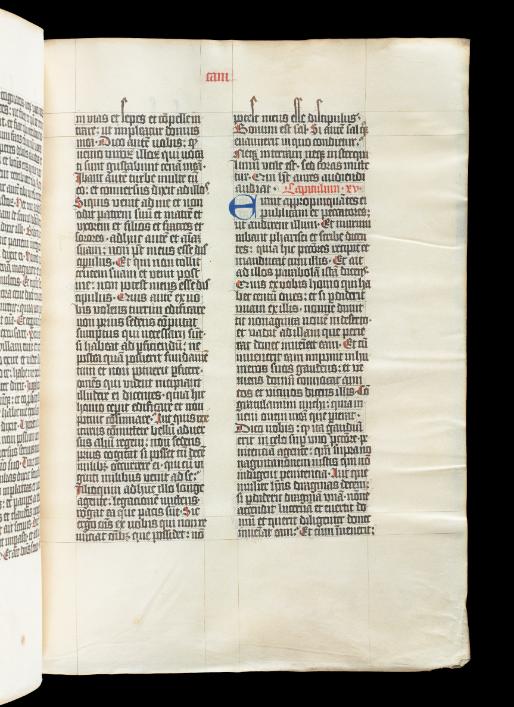 cam
in vias et sepes et cōpelle in
trare: ut impleatur domus
mea. Dico autē vobis: q
nemo viroꝝ illoꝝ qui vocati
sunt gustabunt cenā meā.
Ibant autē turbe multe cū
eo: et conversus dixit ad illos
Siquis venit ad me et non
odit patrem suū et matrē et
uxorem et filios et fratres et
sorores · adhuc autē et aīam
suam: non pōt meus esse dis
cipulus. Et qui non baiulat
crucem suam et venit post
me: non potest meus esse dis
cipulus. Quis autē ex vo
bis volens turrim edificare
non prius sedens cōputat
sumptus qui necessarii sūt:
si habeat ad pficiendū: ne
postea quā posuerit fundamētū
et non potuerit pficere ·
omēs qui vident incipiant
illudere ei dicentes · quia hic
homo cepit edificare et non
potuit cōsummare. Aut quis rex
iturus cōmittere bellū adver
sus aliū regem: non sedens
prius cogitat si possit cū decē
milibꝫ occurrere ei · qui cū vi
ginti milibus venit ad se:
Alioquin adhuc illo longe
agente: legationē mittens
rogat ea que pacis sūt. Sic
ergo oīs ex vobis qui non re
nūciat oībꝫ que possidet: nō
potest meus esse discipulus.
Bonum est sal. Si autē sal
evanuerit in quo condietur.
Neqꝫ in terram neqꝫ in sterqui
linium utile est · sed foras mitte
tur. Qui hꝫ aures audiendi
audiat. Capitulum · xv ·
Erant appropinquātes ei
publicani et peccatores:
ut audirent illum. Et murmu
rabant pharisei et scribe dicen
tes: quia hic pctōres recipit et
manducat cum illis. Et ait
ad illos parabolā istā dicens.
Quis ex vobis homo qui ha
bet centū oves: et si pdiderit
unam ex illis · nonne dimit
tit nonaginta novē in deserto ·
et vadit ad illam que perie
rat donec inveniat eam. Et cū
invenerit eam imponit in hu
meros suos gaudens: et ve
niens domū convocat ami
cos et vicinos dicens illis. Cō
gratulamini michi: quia in
veni ovem meā que perierat.
Dico vobis: q ita gaudiū
erit in celo sup uno pctōre pe
nitenciā agente: qm̄ supra no
naginta novē iustis qui nō
indigent penitencia. Aut que
mulier hn̄s dragmas decem:
si pdiderit dragmā unā: nōne
accendit lucernā et everrit do
mū et querit diligenter donec
inveniat eam. Et cum invenerit: